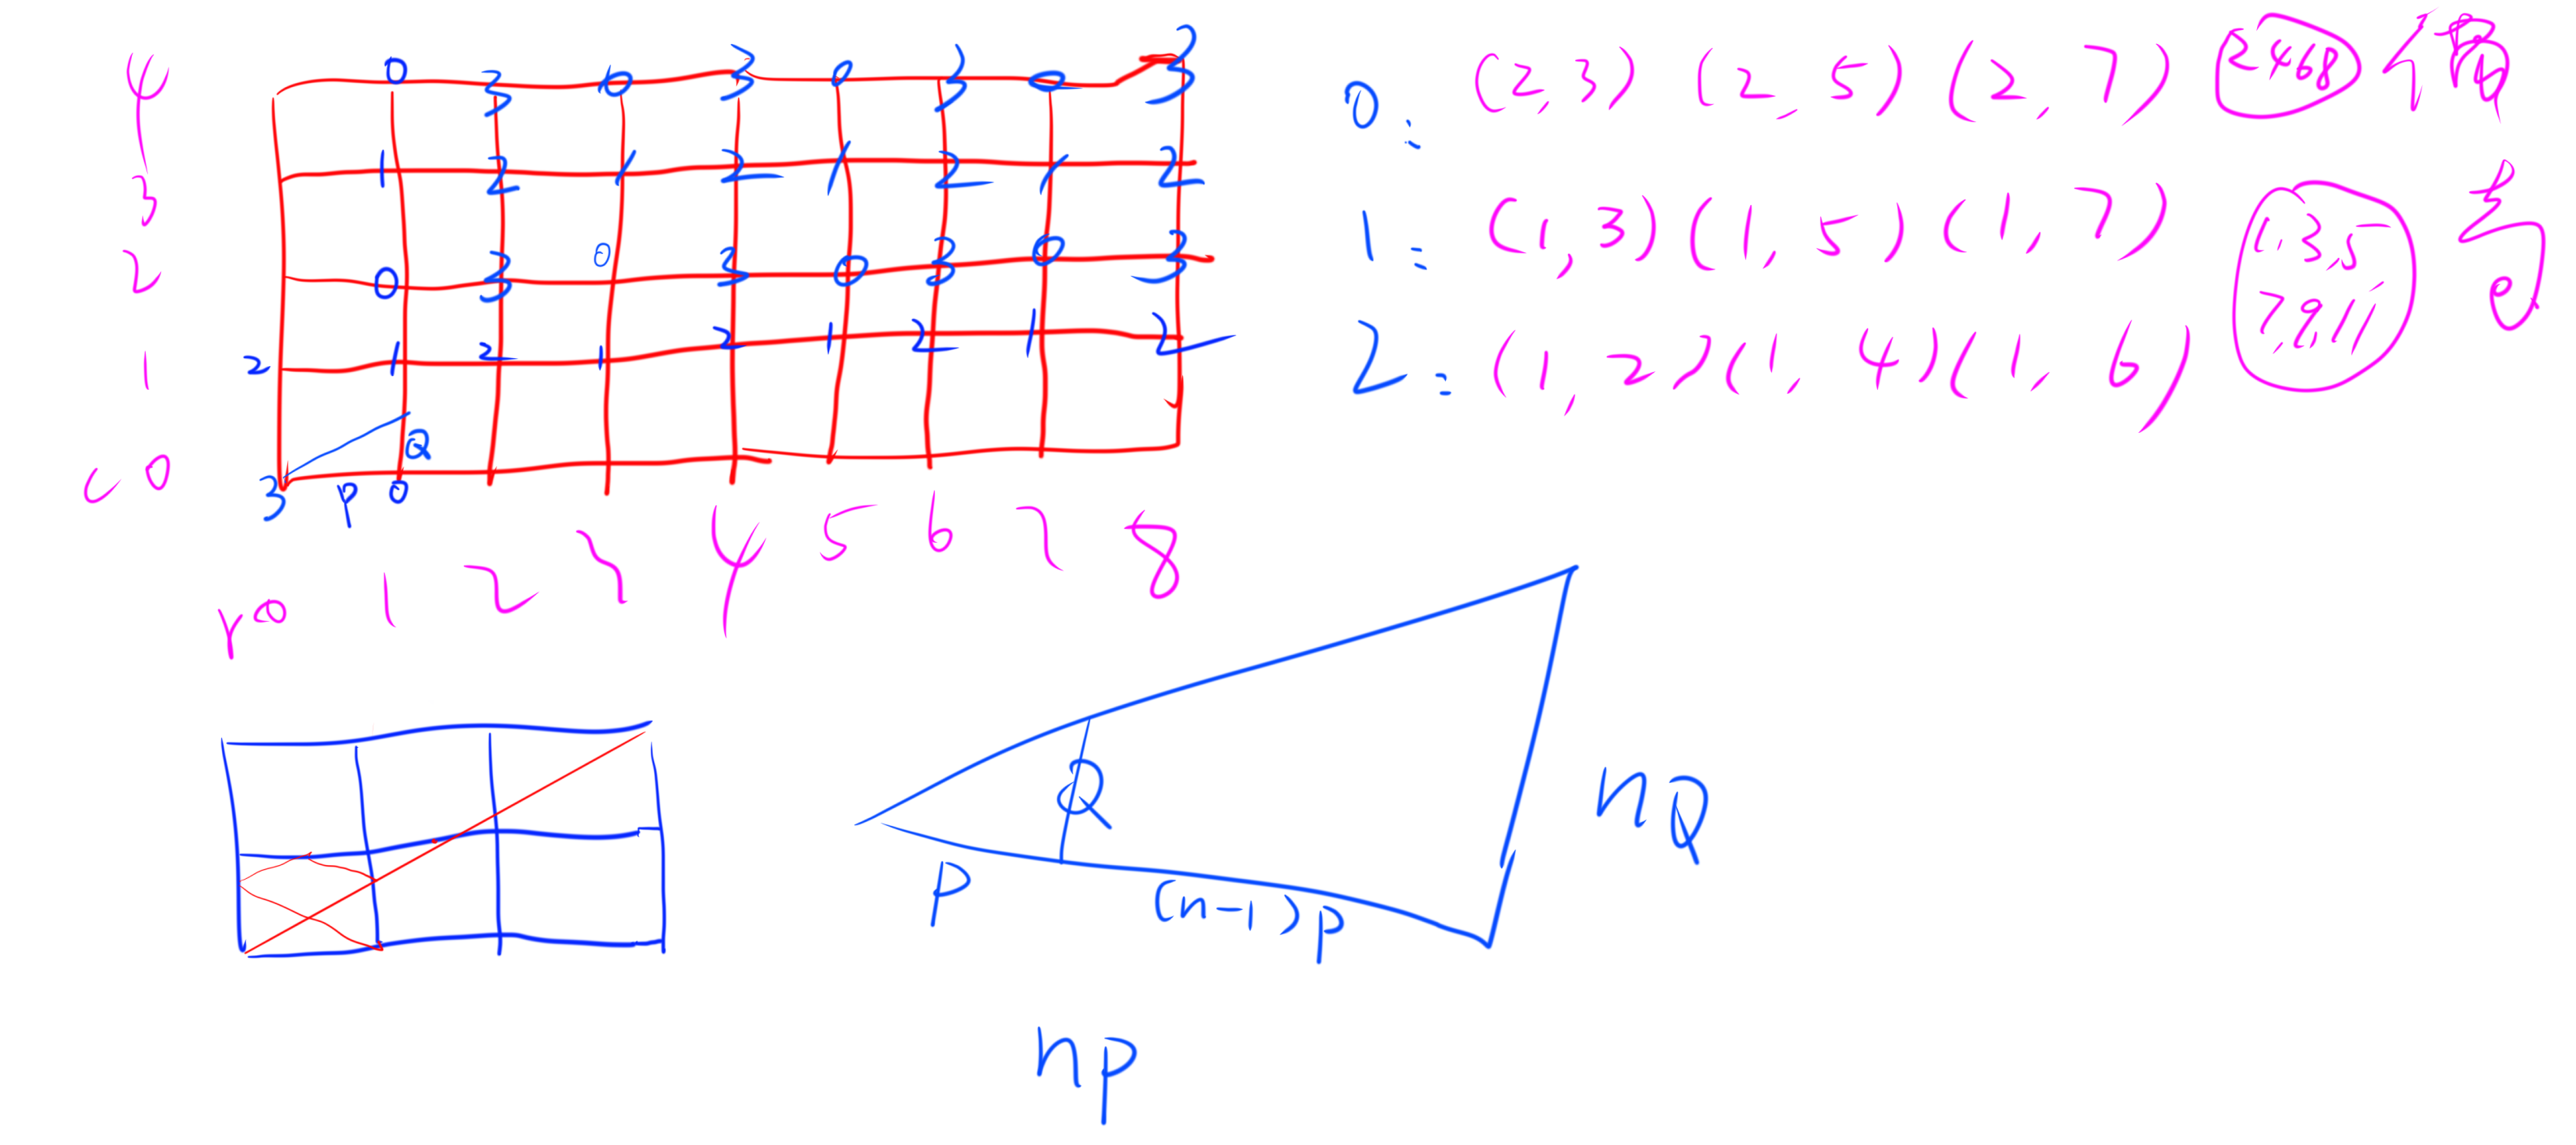 4 0 3 0 3 0 3 0 3
3 1 2 1 2 1 2 1 2
2 0 3 0 3 0 3 0 3
1 2 1 2 1 2 1 2 1 2
c 0 3 P 0 Q
r 0 1 2 3 4 5 6 7 8
0: (2,3) (2,5) (2,7) 2468
1: (1,3) (1,5) (1,7) 1,3,5
7,9,11 奇
2: (1,2) (1,4) (1,6)
Q
nQ
P
(n-1)p
np